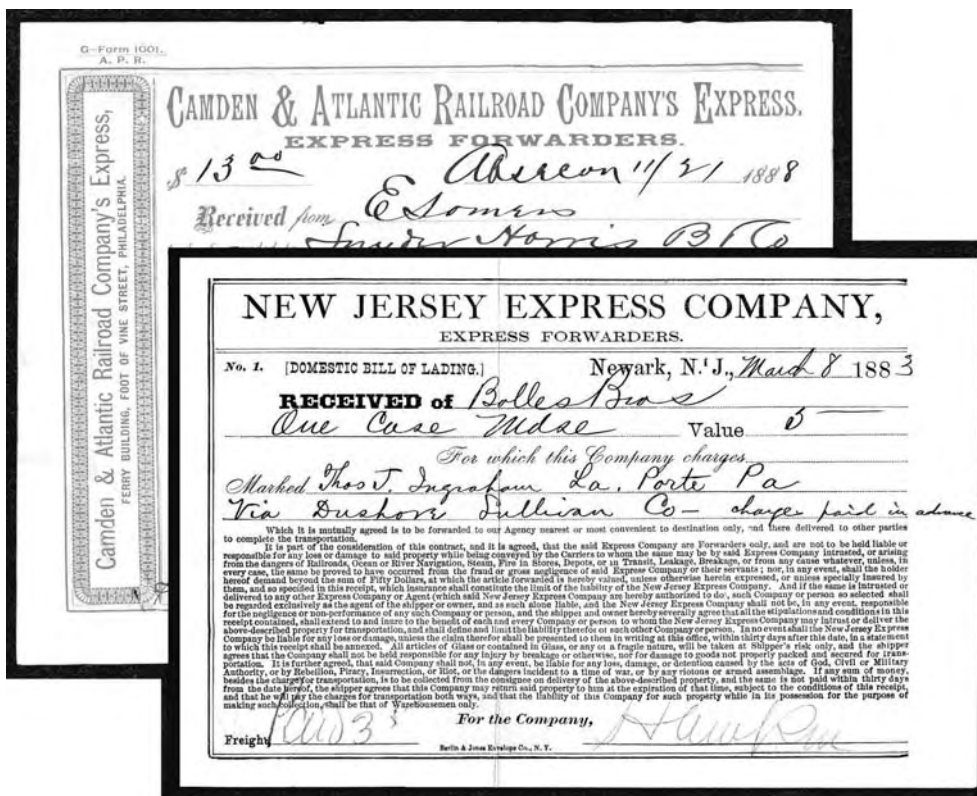 G-Form 1001.
A. P. R.
Camden & Atlantic Railroad Company's Express,
FERRY BUILDING, FOOT OF VINE STREET, PHILADELPHIA.
CAMDEN & ATLANTIC RAILROAD COMPANY'S EXPRESS.
EXPRESS FORWARDERS.
$ 13 00 Absecon 11/21 1888
Received from E Somers
NEW JERSEY EXPRESS COMPANY,
EXPRESS FORWARDERS.
No. 1. [DOMESTIC BILL OF LADING.] Newark, N. J., March 8 1883
RECEIVED of Bolles Bros
One Case Mdse Value 5
For which this Company charges
Marked Thos T. Ingraham La. Porte Pa
Via Dushore Sullivan Co – charges paid in advance
Which it is mutually agreed is to be forwarded to our Agency nearest or most convenient to destination only, and there delivered to other parties
to complete the transportation.
It is part of the consideration of this contract, and it is agreed, that the said Express Company are Forwarders only, and are not to be held liable or
responsible for any loss or damage to said property while being conveyed by the Carriers to whom the same may be by said Express Company intrusted, or arising
from the dangers of Railroads, Ocean or River Navigation, Steam, Fire in Stores, Depots, or in Transit, Leakage, Breakage, or from any cause whatever, unless, in
every case, the same be proved to have occurred from the fraud or gross negligence of said Express Company or their servants; nor, in any event, shall the holder
hereof demand beyond the sum of Fifty Dollars, at which the article forwarded is hereby valued, unless otherwise herein expressed, or unless specially insured by
them, and so specified in this receipt, which insurance shall constitute the limit of the liability of the New Jersey Express Company. And if the same is intrusted or
delivered to any other Express Company or Agent (which said New Jersey Express Company are hereby authorized to do), such Company or person so selected shall
be regarded exclusively as the agent of the shipper or owner, and as such alone liable, and the New Jersey Express Company shall not be, in any event, responsible
for the negligence or non-performance of any such Company or person, and the shipper and owner hereby severally agree that all the stipulations and conditions in this
receipt contained, shall extend to and inure to the benefit of each and every Company or person to whom the New Jersey Express Company may intrust or deliver the
above-described property for transportation, and shall define and limit the liability therefor of such other Company or person. In no event shall the New Jersey Express
Company be liable for any loss or damage, unless the claim therefor shall be presented to them in writing at this office, within thirty days after this date, in a statement
to which this receipt shall be annexed. All articles of Glass or contained in Glass, or any of a fragile nature, will be taken at Shipper's risk only, and the shipper
agrees that the Company shall not be held responsible for any injury by breakage or otherwise, nor for damage to goods not properly packed and secured for trans-
portation. It is further agreed, that said Company shall not, in any event, be liable for any loss, damage, or detention caused by the acts of God, Civil or Military
Authority, or by Rebellion, Piracy, Insurrection, or Riot, or the dangers incident to a time of war, or by any riotous or armed assemblage. If any sum of money,
besides the charges for transportation, is to be collected from the consignee on delivery of the above-described property, and the same is not paid within thirty days
from the date hereof, the shipper agrees that this Company may return said property to him at the expiration of that time, subject to the conditions of this receipt,
and that he will pay the charges for transportation both ways, and that the liability of this Company for such property while in its possession for the purpose of
making such collection, shall be that of Warehousemen only.
For the Company,
Freight Paid 3
Berlin & Jones Envelope Co., N. Y.